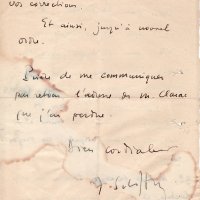 vos corrections.
Et ainsi, jusqu'à nouvel
ordre.
Prière de me communiquer
par retour l'adresse de M. Clarac
que j'ai perdue.
Bien cordialement